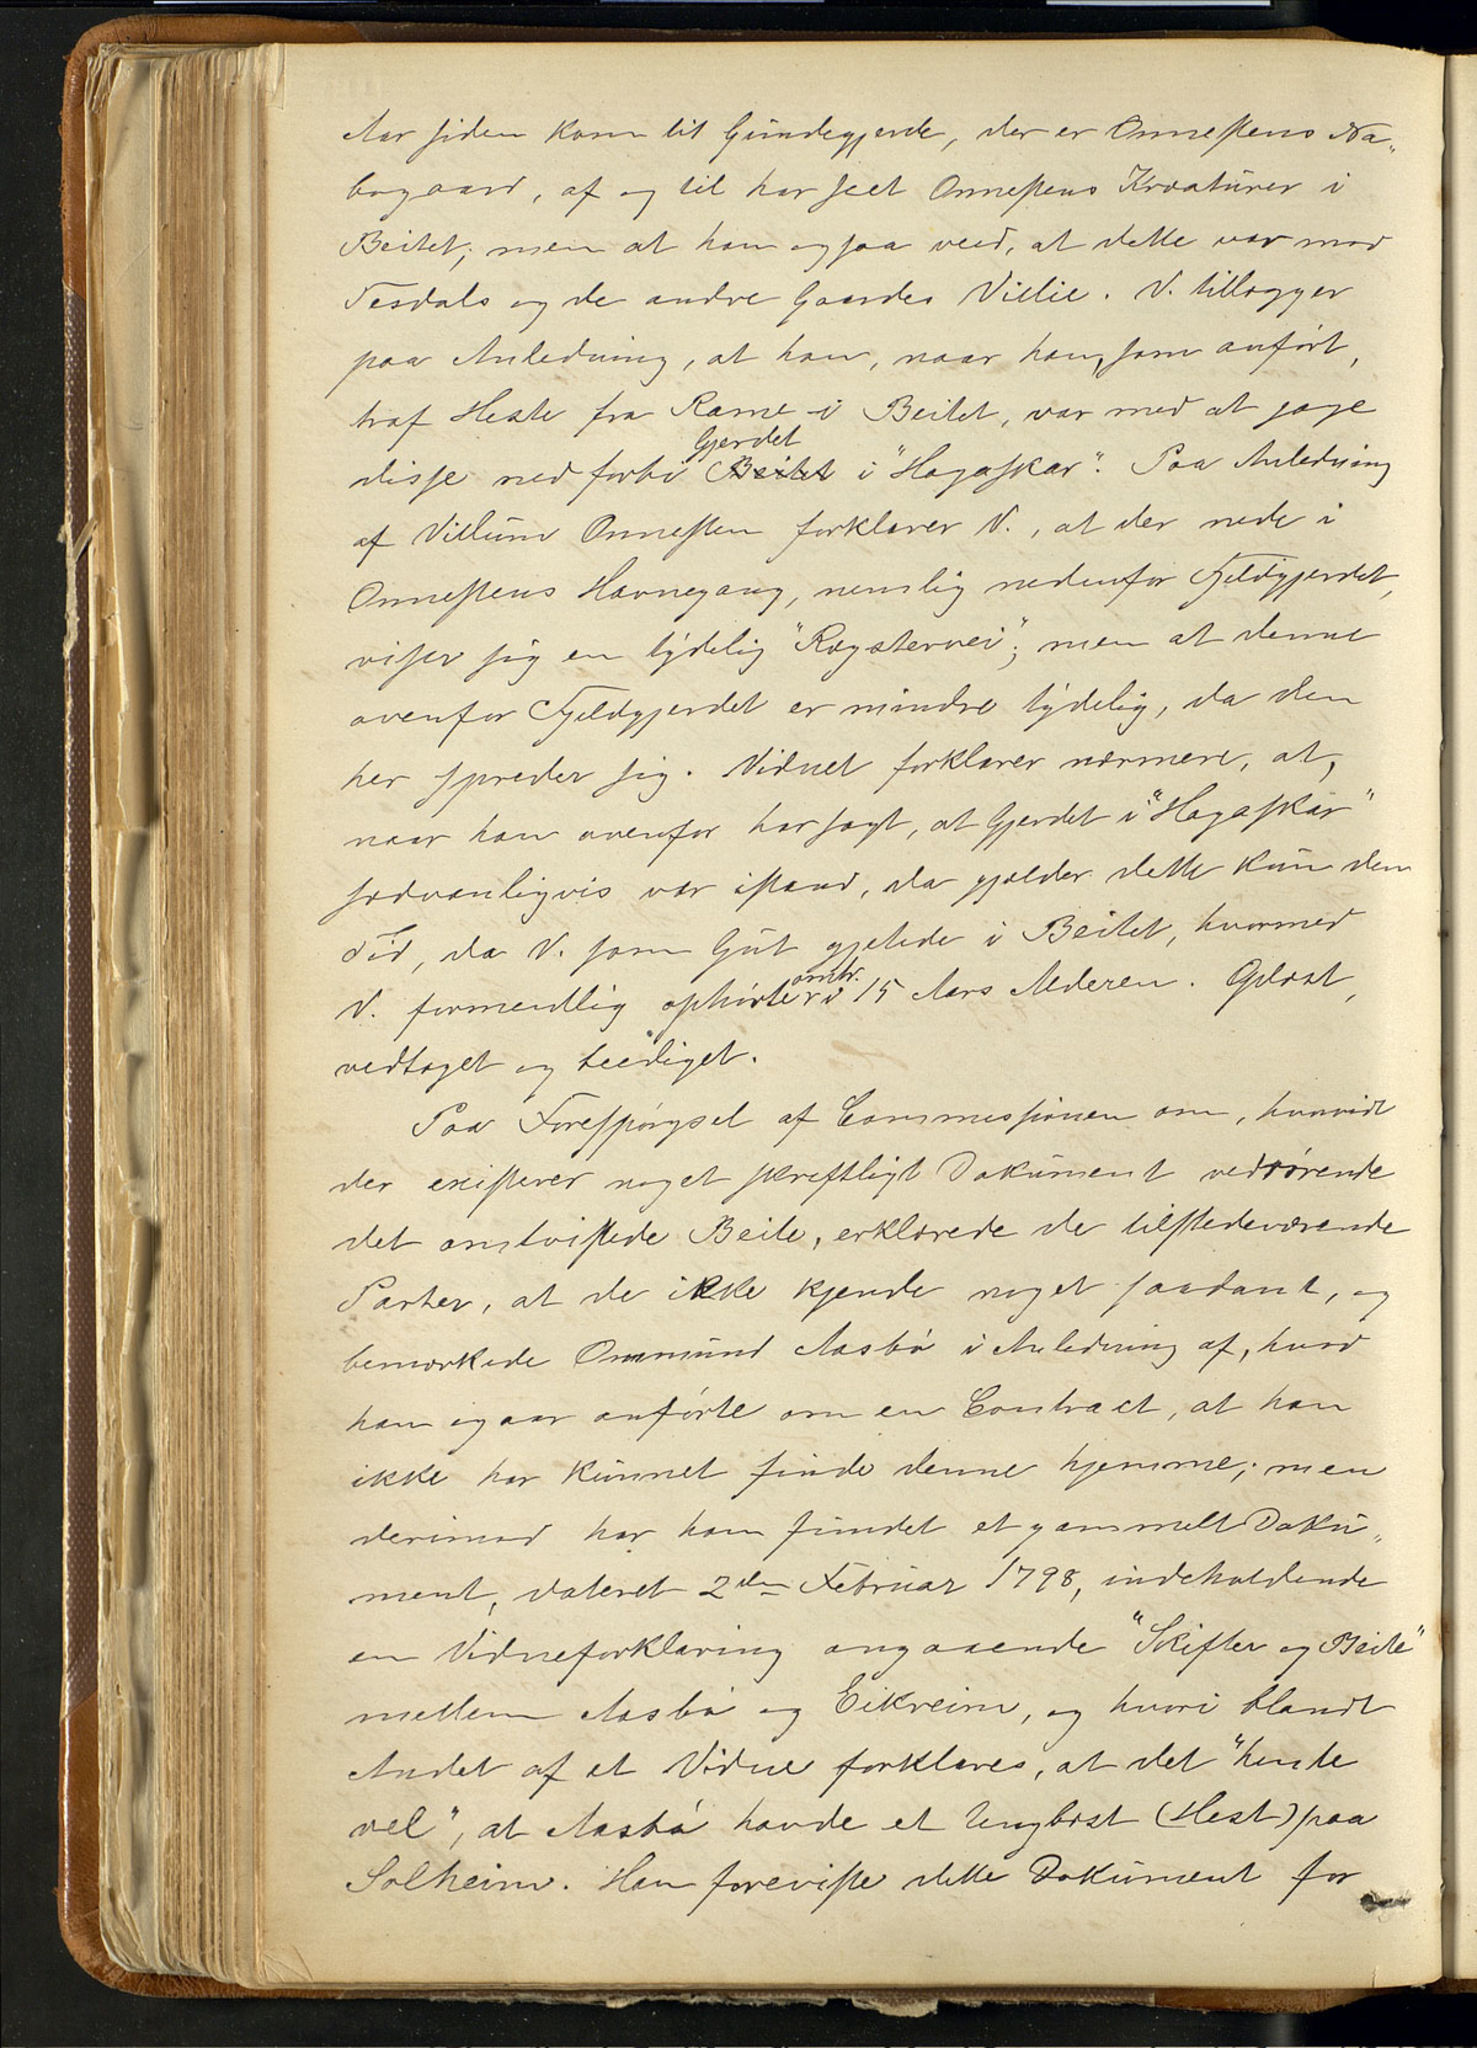 Aar siden kom til Gundegjerde, der er Onnestens Na„
bogaard, af og til har seet Onnestens Kreaturer i
Beitet; men at han ogsaa veed, at dette var mod
Tesdals og de andre Gaardes Villie. V. tillægger
paa Anledning, at han, naar han, som anført,
traf Heste fra Rame i Beitet, var med at jage
disse ned forbi Beitet Gjerdet i "Hagaskar". Paa Anledning
af Villum Onnesten forklarer V., at der nede i
Onnestens Havnegang, nemlig nedenfor Fjeldgjerdet,
viser sig en tydelig "Rogstervei"; men at denne
ovenfor Fjeldgjerdet er mindre tydelig, da den
her spreder sig. Vidnet forklarer nærmere, at,
naar han ovenfor har sagt, at Gjerdet i "Hagaskar"
sædvanligvis var istand, da gjælder dette kun den
Tid, da V. som Gut gjetede i Beitet, hvormed
V. formentlig ophørte omtr. i 15 Aars Alderen. Oplæst,
vedtaget og beediget.
Paa Forespørgsel af Commissionen om, hvorvidt
der existerer noget skriftligt Dokument vedrørende
det omtvistede Beite, erklærede de tilstedeværende
Parter, at de ikke kjende noget saadant, og
bemærkede Ommund Aasbø i Anledning af, hvad
han igaar anførte om en Contract, at han
ikke har kunnet finde denne hjemme; men
derimod har han fundet et gammelt Doku„
ment, dateret 2den Februar 1798, indeholdende
en Vidneforklaring angaaende "Skifter og Beite"
mellem Aasbø og Eikreim, og hvori blandt
Andet af et Vidne forklares, at det "hendte
vel", at Aasbø havde et Ungbæst (Hest) paa
Solheim. Han foreviste dette Dokument for